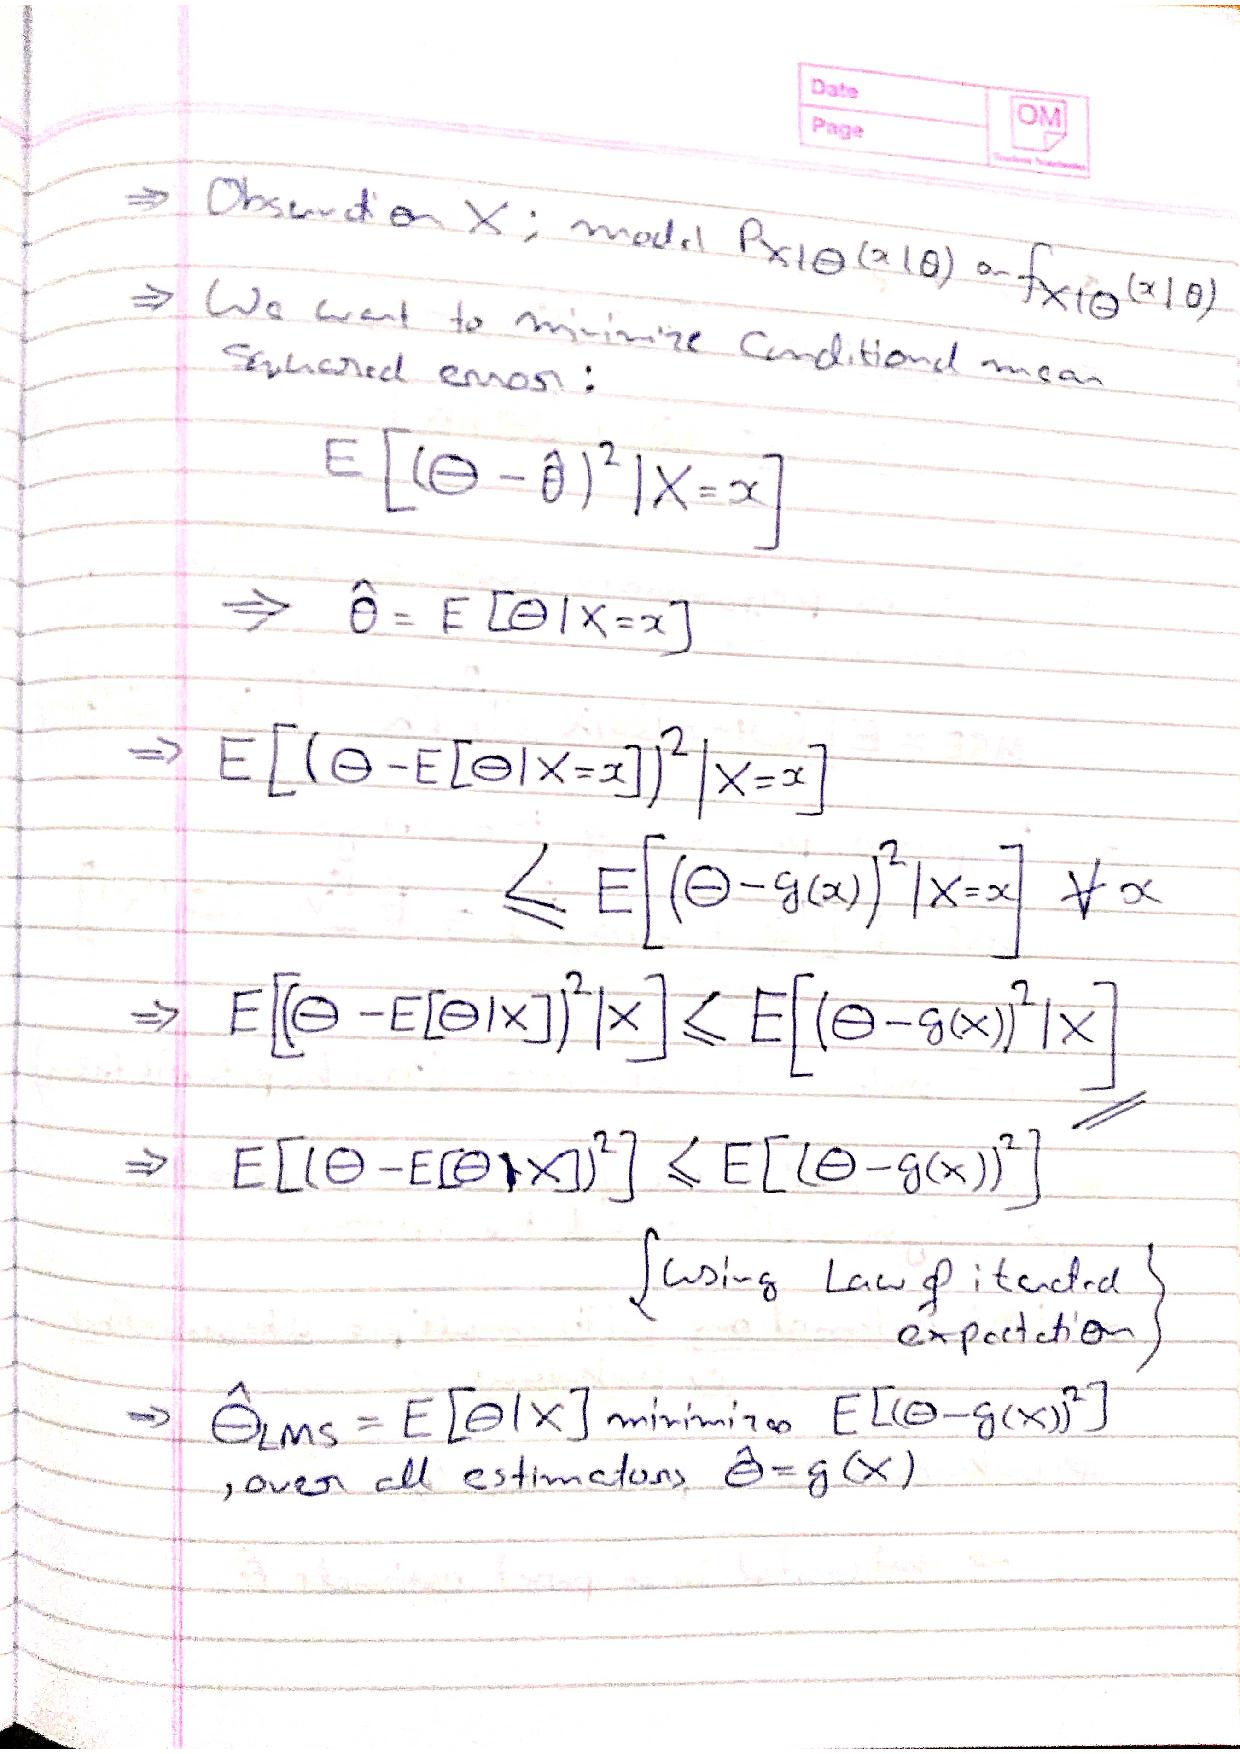 Date
Page
OM
⇒ Observation X; model P_{X|Θ}(x|θ) or f_{X|Θ}(x|θ)
⇒ We want to minimize Conditional mean
squared error:
E[(Θ - θ̂)² | X=x]
⇒ θ̂ = E[Θ|X=x]
⇒ E[(Θ - E[Θ|X=x])² | X=x]
≤ E[(Θ - g(x))² | X=x] ∀ x
⇒ E[(Θ - E[Θ|X])² | X] ≤ E[(Θ - g(X))² | X]
⇒ E[(Θ - E[Θ|X])²] ≤ E[(Θ - g(X))²]
{using Law of iterated
expectation}
⇒ Θ̂_{LMS} = E[Θ|X] minimizes E[(Θ - g(X))²]
, over all estimators Θ̂ = g(X)